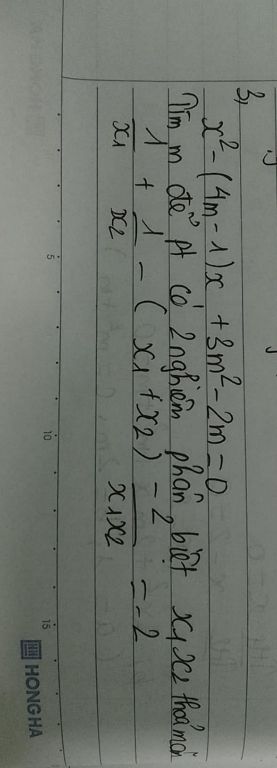 3,
x² - (4m-1)x + 3m² - 2m = 0
Tìm m để pt có 2 nghiệm phân biệt x₁ x₂ thoả mãn
1/x₁ + 1/x₂ - (x₁+x₂) - 2/x₁x₂ = -2
5 10 15
HONGHA